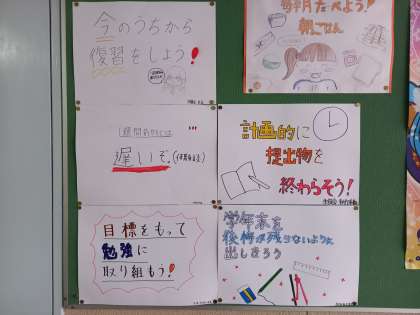 今のうちから
復習をしよう!
毎月たべよう!
朝ごはん
遅いぞ。
計画的に
提出物を
終わらそう!
目標をもって
勉強に
取り組もう!
学年末を
後悔が残らないように
出しきろう